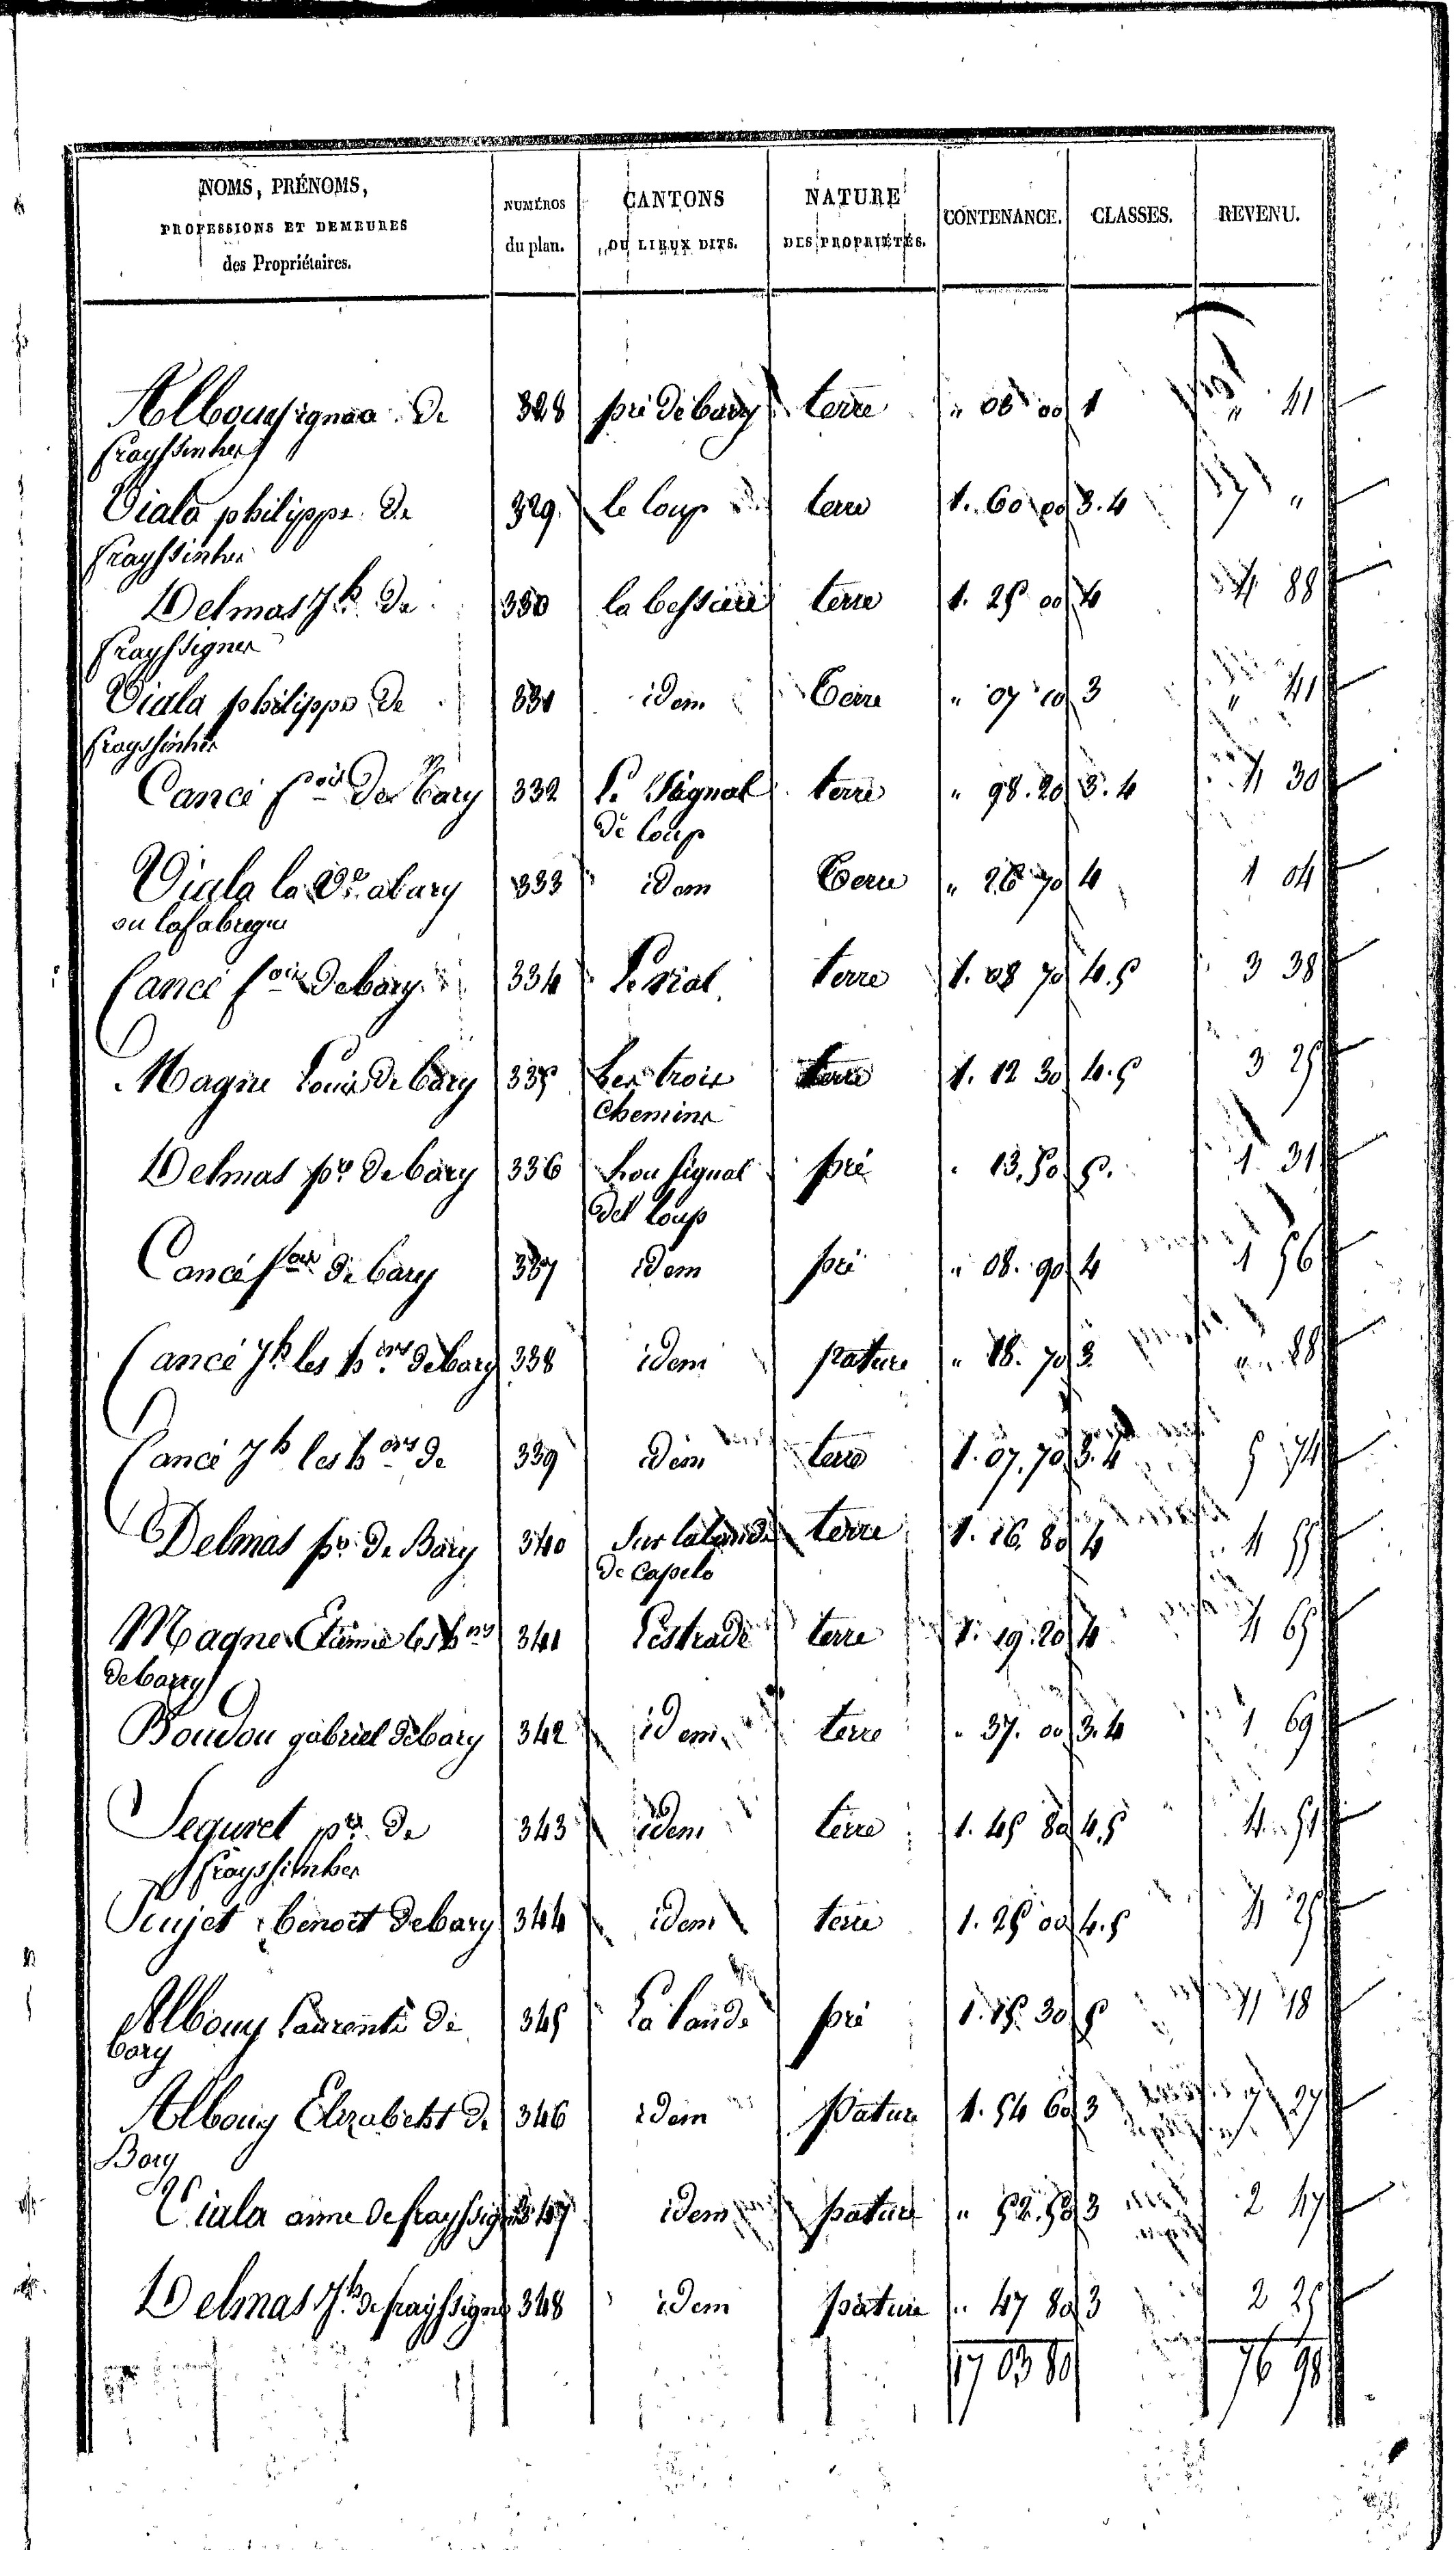 NOMS, PRÉNOMS,
PROFESSIONS ET DEMEURES
des Propriétaires.
NUMÉROS
du plan.
CANTONS
OU LIEUX DITS.
NATURE
DES PROPRIÉTÉS.
CONTENANCE.
CLASSES.
REVENU.
Alboussignac de 328 pré de bary terre " 06 00 1 " 41
frayssinhes
Viala philippe de 329 le loup terre 1. 60 00 3.4 7 "
frayssinhes
Delmas Jh de 330 la bessiere terre 1. 25 00 4 4 88
frayssignes
Viala philippe de 331 idem terre " 07 10 3 " 41
frayssinhes
Cancé fois de bary 332 le signal terre " 98. 20 3.4 4 30
de loup
Viala la Ve a bary 333 idem terre " 26 70 4 1 04
ou lafabregue
Cancé fois de bary 334 terre 1. 08 70 4.5 3 38
Magne Louis de bary 335 les trois terre 1. 12 30 4.5 3 25
chemins
Delmas pre de bary 336 lou signal pré " 13. 50 5. 1 31
del loup
Cancé fois de bary 337 idem pré " 08. 90 4 1 56
Cancé Jh les hers de bary 338 idem pature " 18. 70 3 " 88
Cancé Jh les hers de 339 idem terre 1. 07. 70 3.4 5 74
Delmas pre de Bary 340 sur la lande terre 1. 16. 80 4 4 55
de capelo
Magne Etienne les hers 341 l'estrade terre 1. 19. 20 4 4 65
de barry
Boudou gabriel de bary 342 idem terre " 37. 00 3.4 1 69
Seguret pre de 343 idem terre 1. 45 80 4.5 4 51
frayssinhes
benoit de bary 344 idem terre 1. 25 00 4.5 4 25
Albouy Laurent de 345 La Lande pré 1. 15. 30 5 11 18
bary
Albouy Elizabeht de 346 idem pature 1. 54 60 3 7 27
Bary
Viala aime de frayssignes 347 idem pature " 52. 50 3 2 47
Delmas Jh de frayssignes 348 idem pature " 47 80 3 2 25
17 03 80 76 98